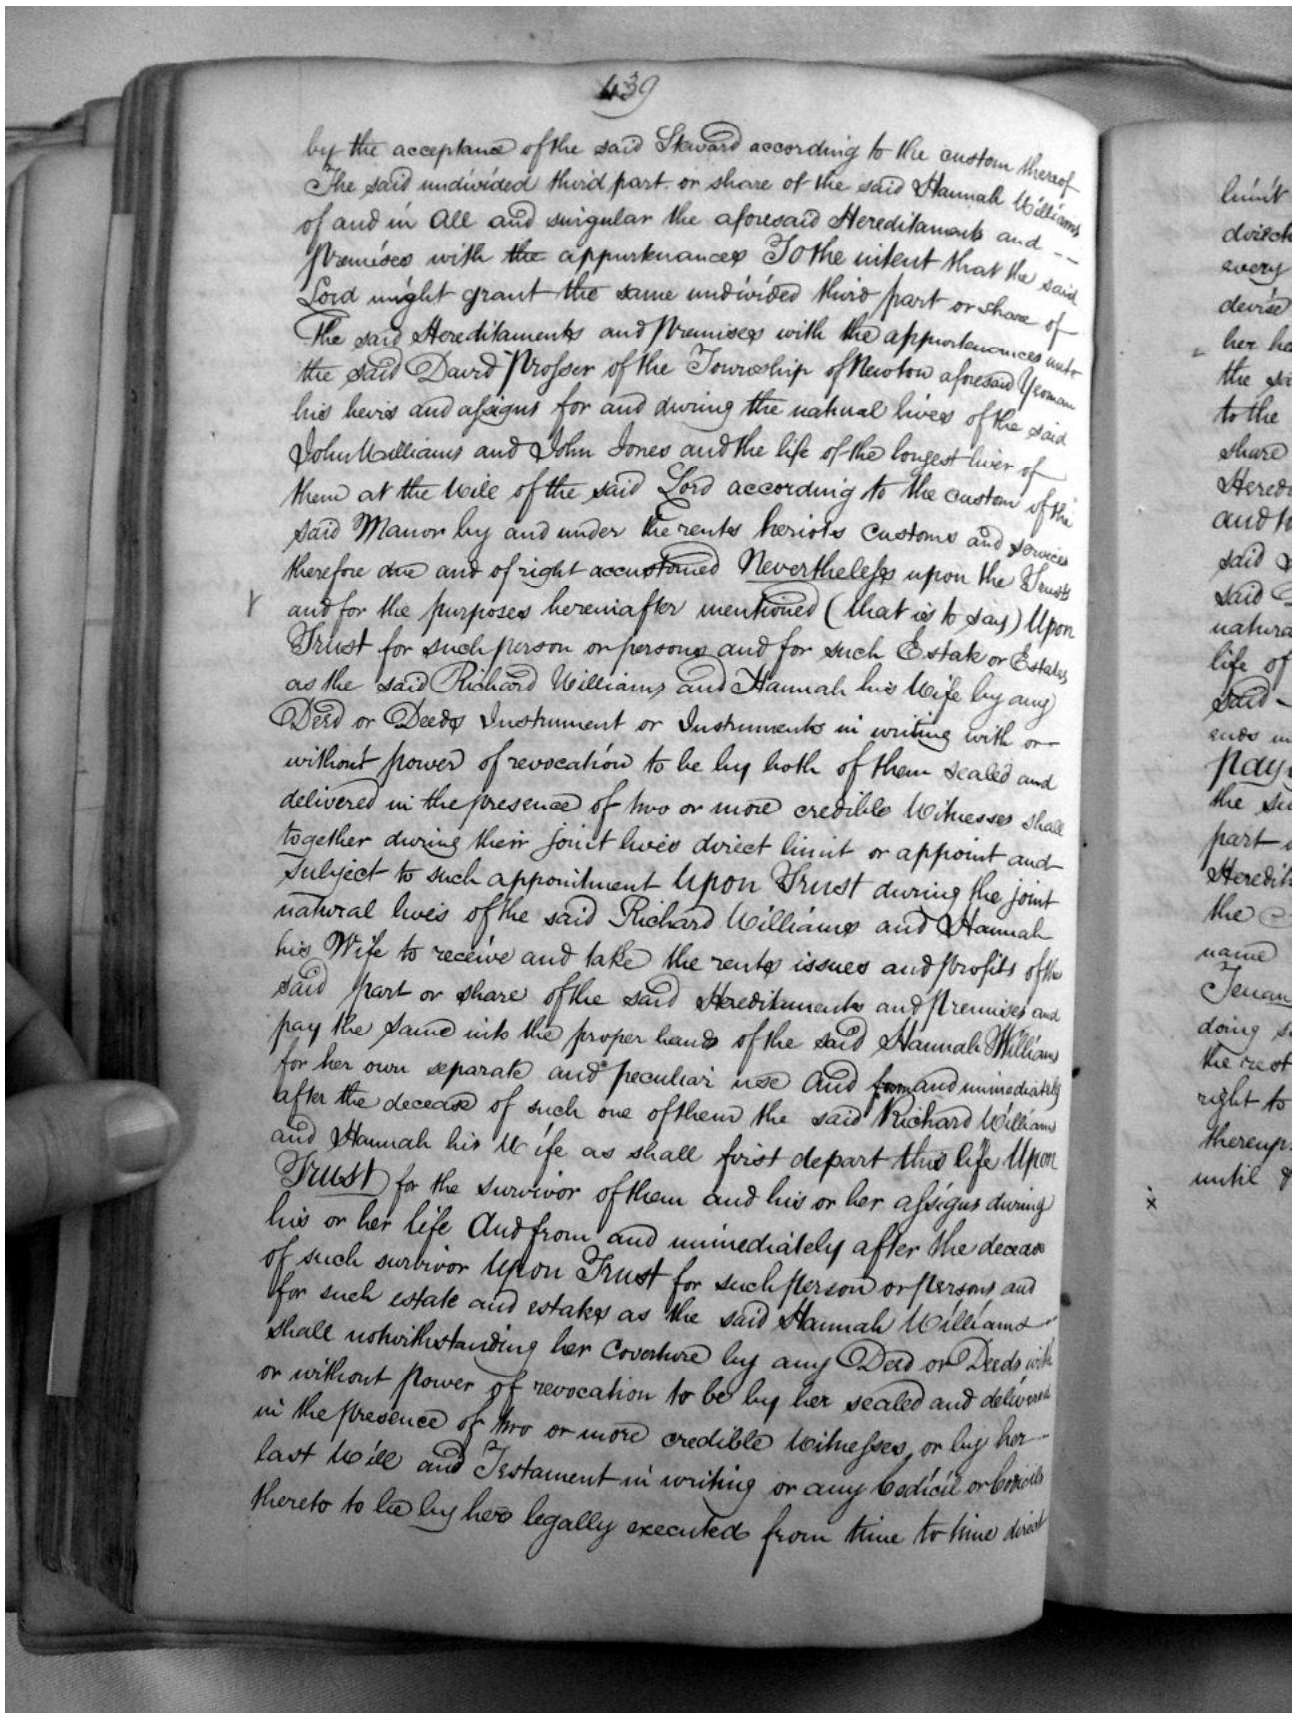 439
by the acceptance of the said Steward according to the custom thereof
The said undivided third part or share of the said Hannah Williams
of and in All and singular the aforesaid Hereditaments and --
Premises with the appurtenances To the intent that the said
Lord might grant the same undivided third part or share of
The said Hereditaments and Premises with the appurtenances unto
the said David Prosser of the Township of Newton aforesaid Yeoman
his heirs and assigns for and during the natural lives of the said
John Williams and John Jones and the life of the longest liver of
them at the Will of the said Lord according to the custom of the
said Manor by and under the rents heriots customs and services
therefore due and of right accustomed Nevertheless upon the Trusts
and for the purposes hereinafter mentioned (that is to say) Upon
Trust for such person or persons and for such Estate or Estates
as the said Richard Williams and Hannah his Wife by any
Deed or Deeds Instrument or Instruments in writing with or
without power of revocation to be by both of them sealed and
delivered in the presence of two or more credible Witnesses shall
together during their joint lives direct limit or appoint and
subject to such appointment Upon Trust during the joint
natural lives of the said Richard Williams and Hannah
his Wife to receive and take the rents issues and profits of the
said part or share of the said Hereditaments and Premises and
pay the same into the proper hands of the said Hannah Williams
for her own separate and peculiar use And from and immediately
after the decease of such one of them the said Richard Williams
and Hannah his Wife as shall first depart this life Upon
Trust for the survivor of them and his or her assigns during
his or her life And from and immediately after the decease
of such survivor Upon Trust for such person or persons and
for such estate and estates as the said Hannah Williams
shall notwithstanding her Coverture by any Deed or Deeds with
or without power of revocation to be by her sealed and delivered
in the presence of two or more credible Witnesses or by her
last Will and Testament in writing or any Codicil or Codicils
thereto to be by her legally executed from time to time direct
limit
every
devise
to the
share
said
said
natura
life of
said
ends in
the
part
the
name
Tenan
doing
the rest
right to
until